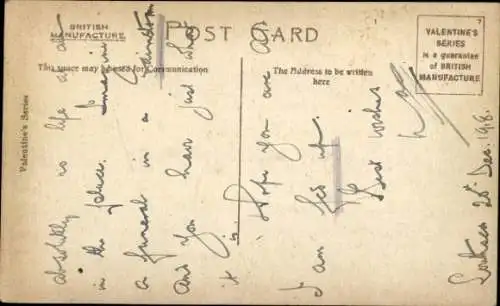 BRITISH
MANUFACTURE
POST CARD
This space may be used for Communication
The Address to be written
here
VALENTINE'S
SERIES
is a guarantee
of BRITISH
MANUFACTURE
Valentine's Series
absolutely no life at all
in the place. Imagine
a funeral in a
and you have just what
it is.
Hope you are
I am fed up.
Best wishes
28 Dec. 1918.